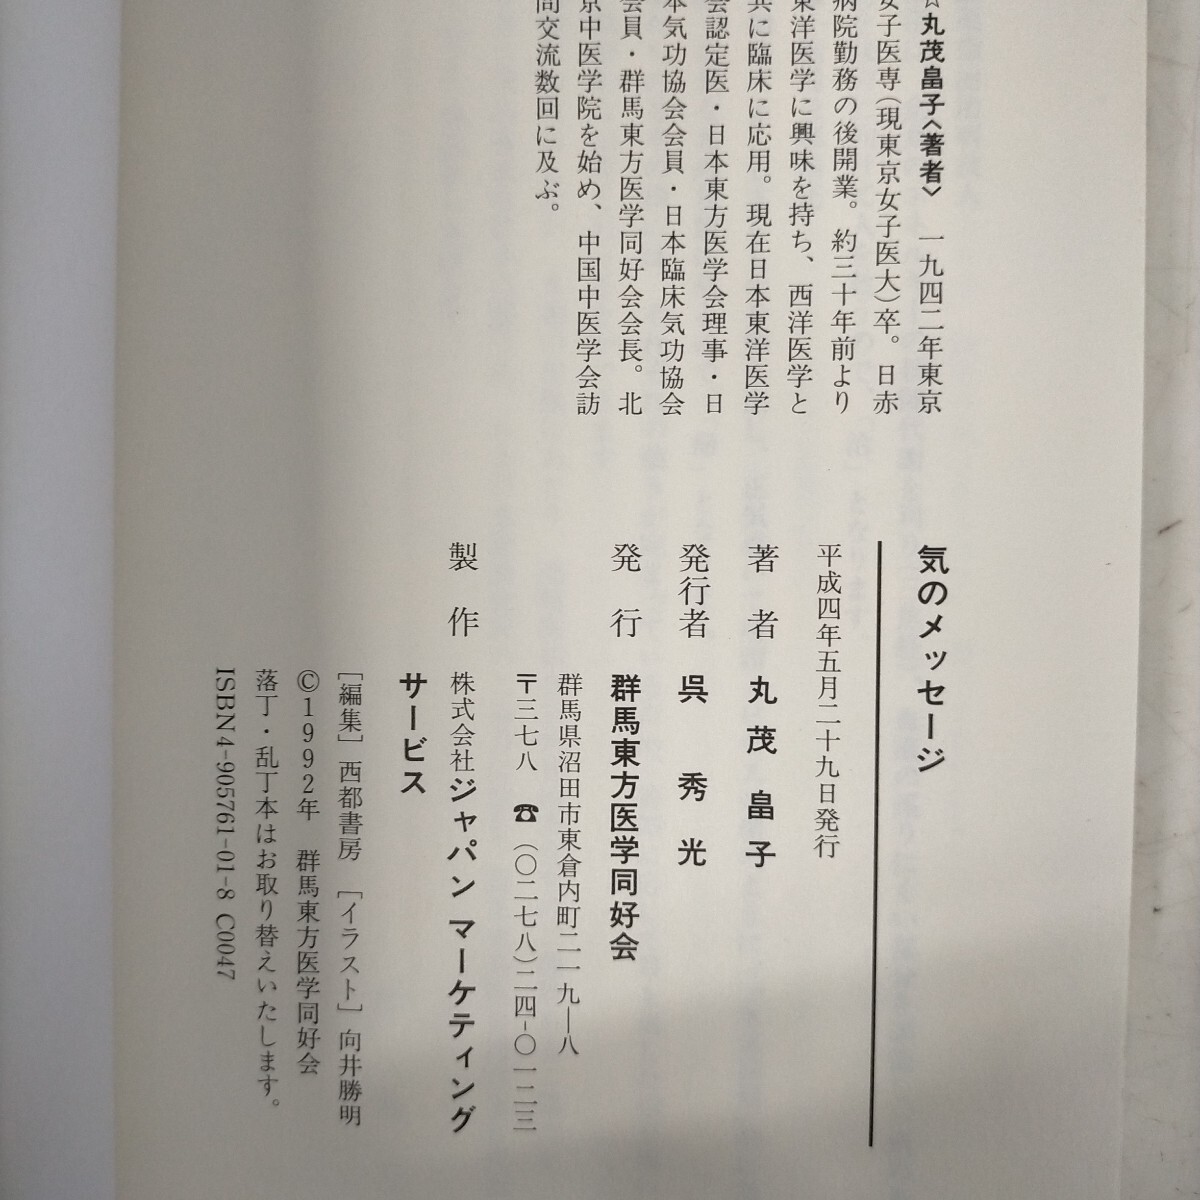 ☆丸茂畠子〈著者〉 一九四二年東京
女子医専(現東京女子医大)卒。日赤
病院勤務の後開業。約三十年前より
東洋医学に興味を持ち、西洋医学と
共に臨床に応用。現在日本東洋医学
会認定医・日本東方医学会理事・日
本気功協会会員・日本臨床気功協会
会員・群馬東方医学同好会会長。北
京中医学院を始め、中国中医学会訪
問交流数回に及ぶ。
気のメッセージ
平成四年五月二十九日発行
著者 丸茂畠子
発行者 呉秀光
発行 群馬東方医学同好会
群馬県沼田市東倉内町二一九―八
〒三七八 ☎(〇二七八)二四-〇一二三
製作 株式会社ジャパン マーケティング
サービス
[編集]西都書房 [イラスト]向井勝明
©1992年 群馬東方医学同好会
落丁・乱丁本はお取り替えいたします。
ISBN4-905761-01-8 C0047